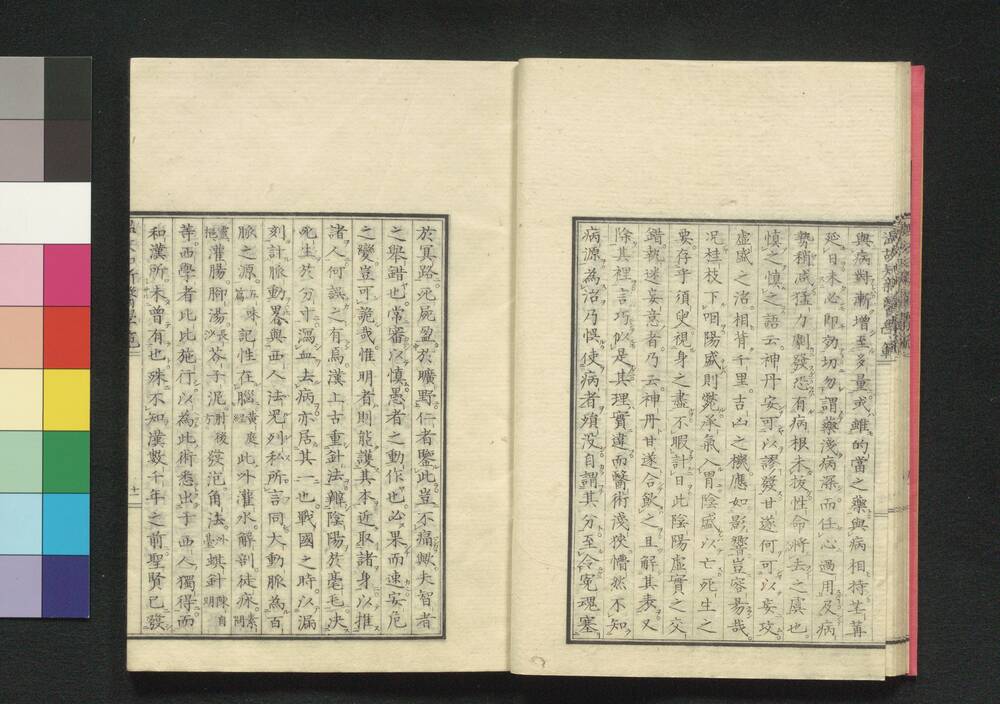 與病對漸增至多量或雖的當之藥與病相持苦
延日未必即効切勿謂藥淺病深而任心過用及病
勢稍減猛力劇發恐有病根未拔性命將去之虞也
慎之慎之語云神丹安可以謬發甘遂何可以妄攻
虛盛之治相背千里吉凶之機應如影響豈容易哉
况桂枝下咽陽盛則斃承氣入胃陰盛以亡死生之
要存乎須臾視身之盡不暇計日此陰陽虛實之交
錯執迷妄意者乃云神丹甘遂合飲之且解其表又
除其裡言巧似是其理實違而醫術淺狹懵然不知
病源為治乃悞使病者殞没自謂其分至令冤魂塞
於冥路死屍盈於曠野仁者鑒此豈不痛歟夫智者
之舉錯也常審以慎愚者之動作也必果而速安危
之變豈可詭哉惟明者則能護其本近取諸身以推
諸人何誤之有焉漢上古重針法辨陰陽於毫毛决
死生於分寸瀉血去病亦居其一也戰國之時以漏
刻計脈動畧與西人法児列私所言同大動脈為百
脈之源五味篇記性在腦黃庭經此外灌水解剖徒痳素問
灌腸脚湯長沙芥子泥肘後方發疱角法外臺蜞針陳自明
等西學者比比施行以為此術悉出于西人獨得而
和漢所未曾有也殊不知漢數千年之前聖賢已發
十一